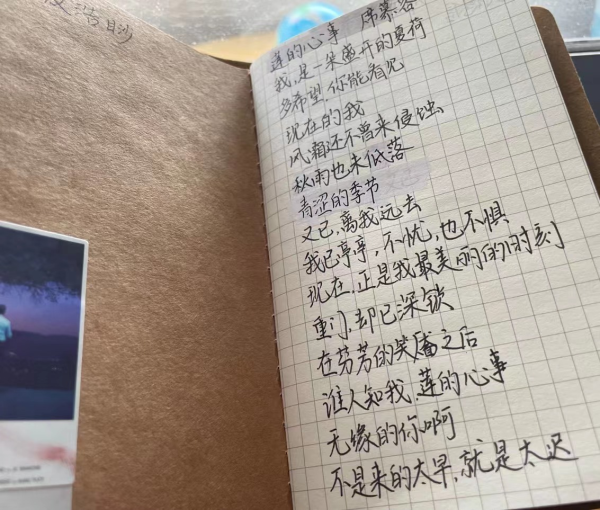 莲的心事 席慕容
我,是一朵盛开的夏荷
多希望,你能看见
现在的我
风霜还不曾来侵蚀
秋雨也未低落
青涩的季节
又已,离我远去
我已亭亭,不忧,也不惧
现在,正是我最美丽的时刻
重门,却已深锁
在芬芳的笑靥之后
谁人知我,莲的心事
无缘的你啊
不是来的太早,就是太迟